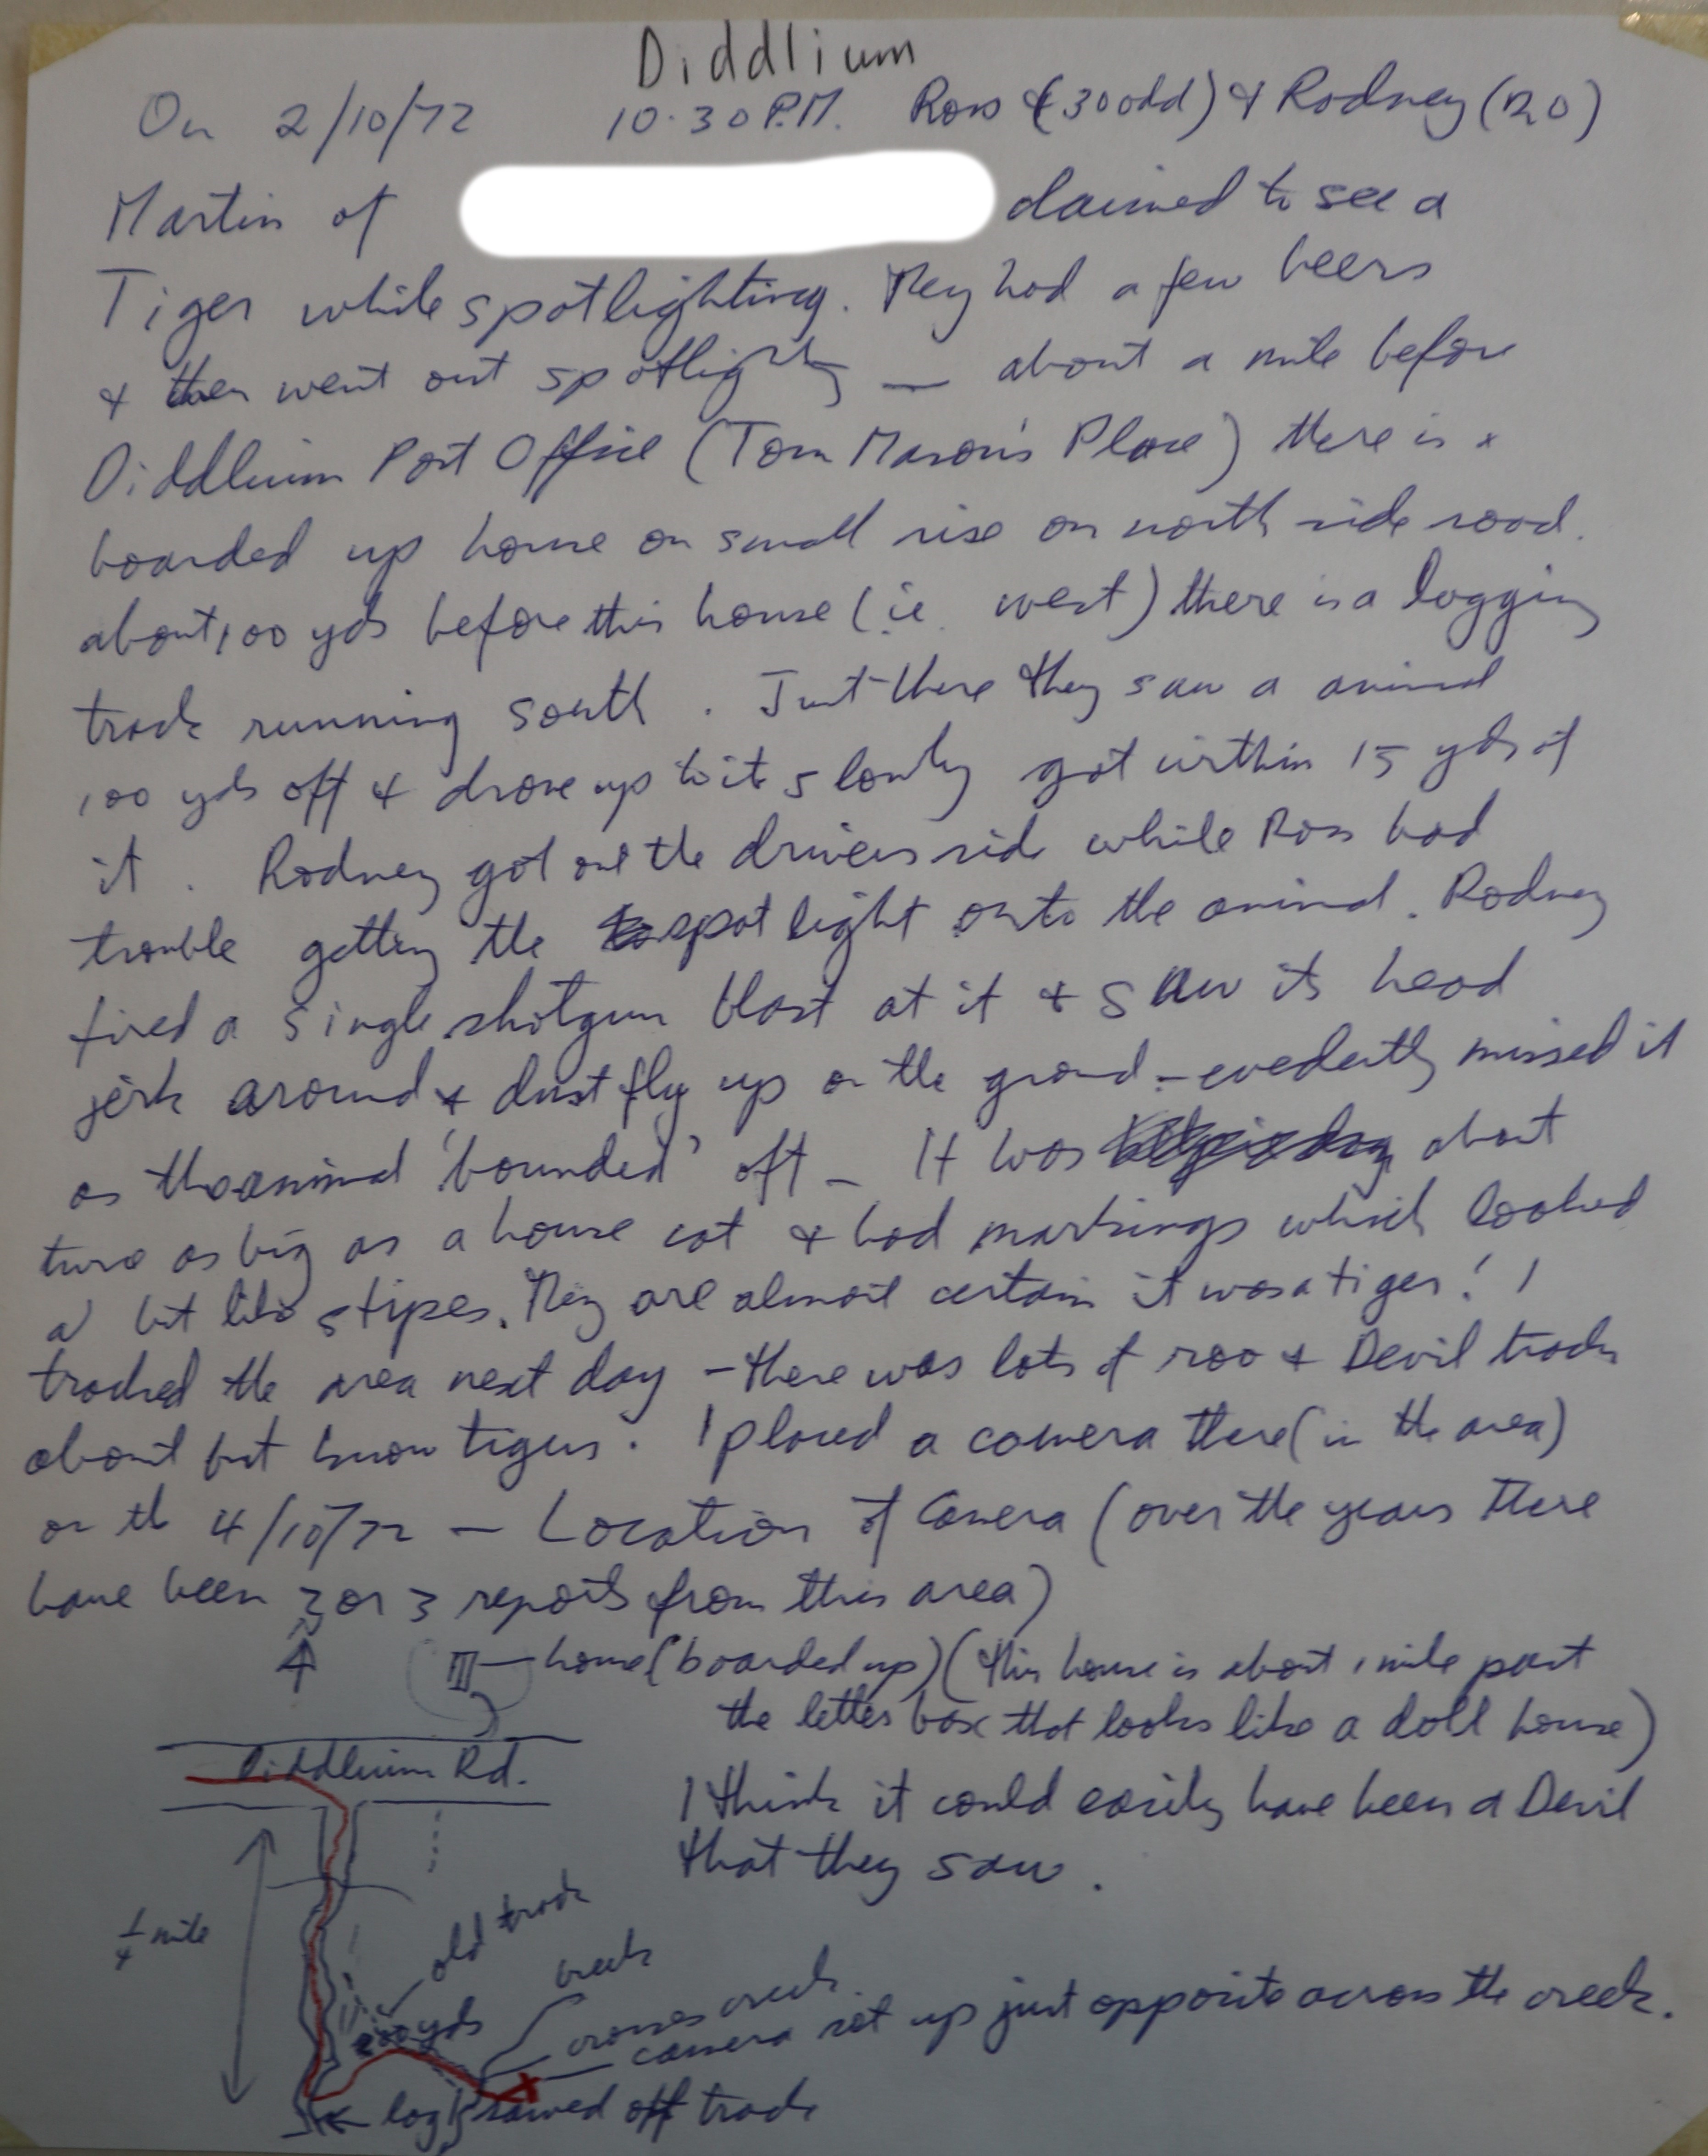 Diddlium
On 2/10/72 10.30 P.M. Ross (30 odd) & Rodney (20)
Martin of claimed to see a
Tiger while spotlighting. They had a few beers
& then went out spotlighting — about a mile before
Diddlium Post Office (Tom Mason's Place) there is a
boarded up house on small rise on north side road.
about 100 yds before this house (ie west) there is a logging
track running south. Just there they saw a animal
100 yds off & drove up to it slowly got within 15 yds of
it. Rodney got out the drivers side while Ross had
trouble getting the spot light onto the animal. Rodney
fired a single shotgun blast at it & saw its head
jerk around & dust fly up on the ground - evedently missed it
as the animal 'bounded' off — It was about
twice as big as a house cat & had markings which looked
a bit like stipes. They are almost certain it was a tiger! I
tracked the area next day - there was lots of roo & Devil tracks
about but know tigers. I placed a camera there (in the area)
on the 4/10/72 — Location of Camera (over the years there
have been 2 or 3 reports from this area)
N
house (boarded up) (this house is about 1 mile past
the letter box that looks like a doll house)
Diddlium Rd.
I think it could easily have been a Devil
that they saw.
1/4 mile
old track
creek
200 yds
crosses creek
camera set up just opposite across the creek.
log sawed off track